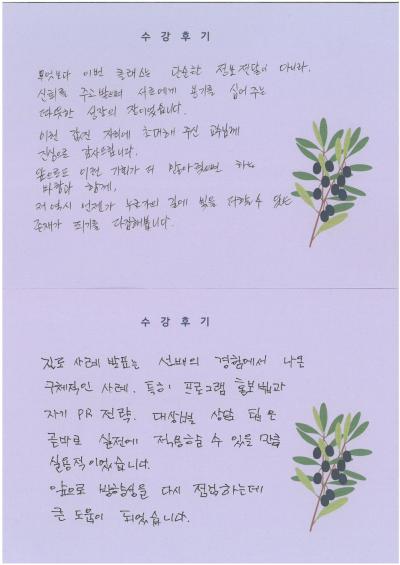 수 강 후 기
무엇보다 이번 클래스는 단순한 정보전달이 아니라,
신뢰를 주고받으며 서로에게 용기를 심어주는
따뜻한 성장의 장이었습니다.
이런 값진 자리에 초대해 주신 교수님께
진심으로 감사드립니다.
앞으로도 이런 기회가 더 많아졌으면 하는
바람과 함께,
저 역시 언젠가 누군가의 길에 빛을 더해줄 수 있는
존재가 되기를 다짐해봅니다.
수 강 후 기
진로 사례 발표는 선배의 경험에서 나온
구체적인 사례. 특히 프로그램 홍보법과
자기 PR 전략. 대상별 상담 팁은
곧바로 실전에 적용하실 수 있을 만큼
실용적이었습니다.
앞으로 방향성을 다시 점검하는데
큰 도움이 되었습니다.